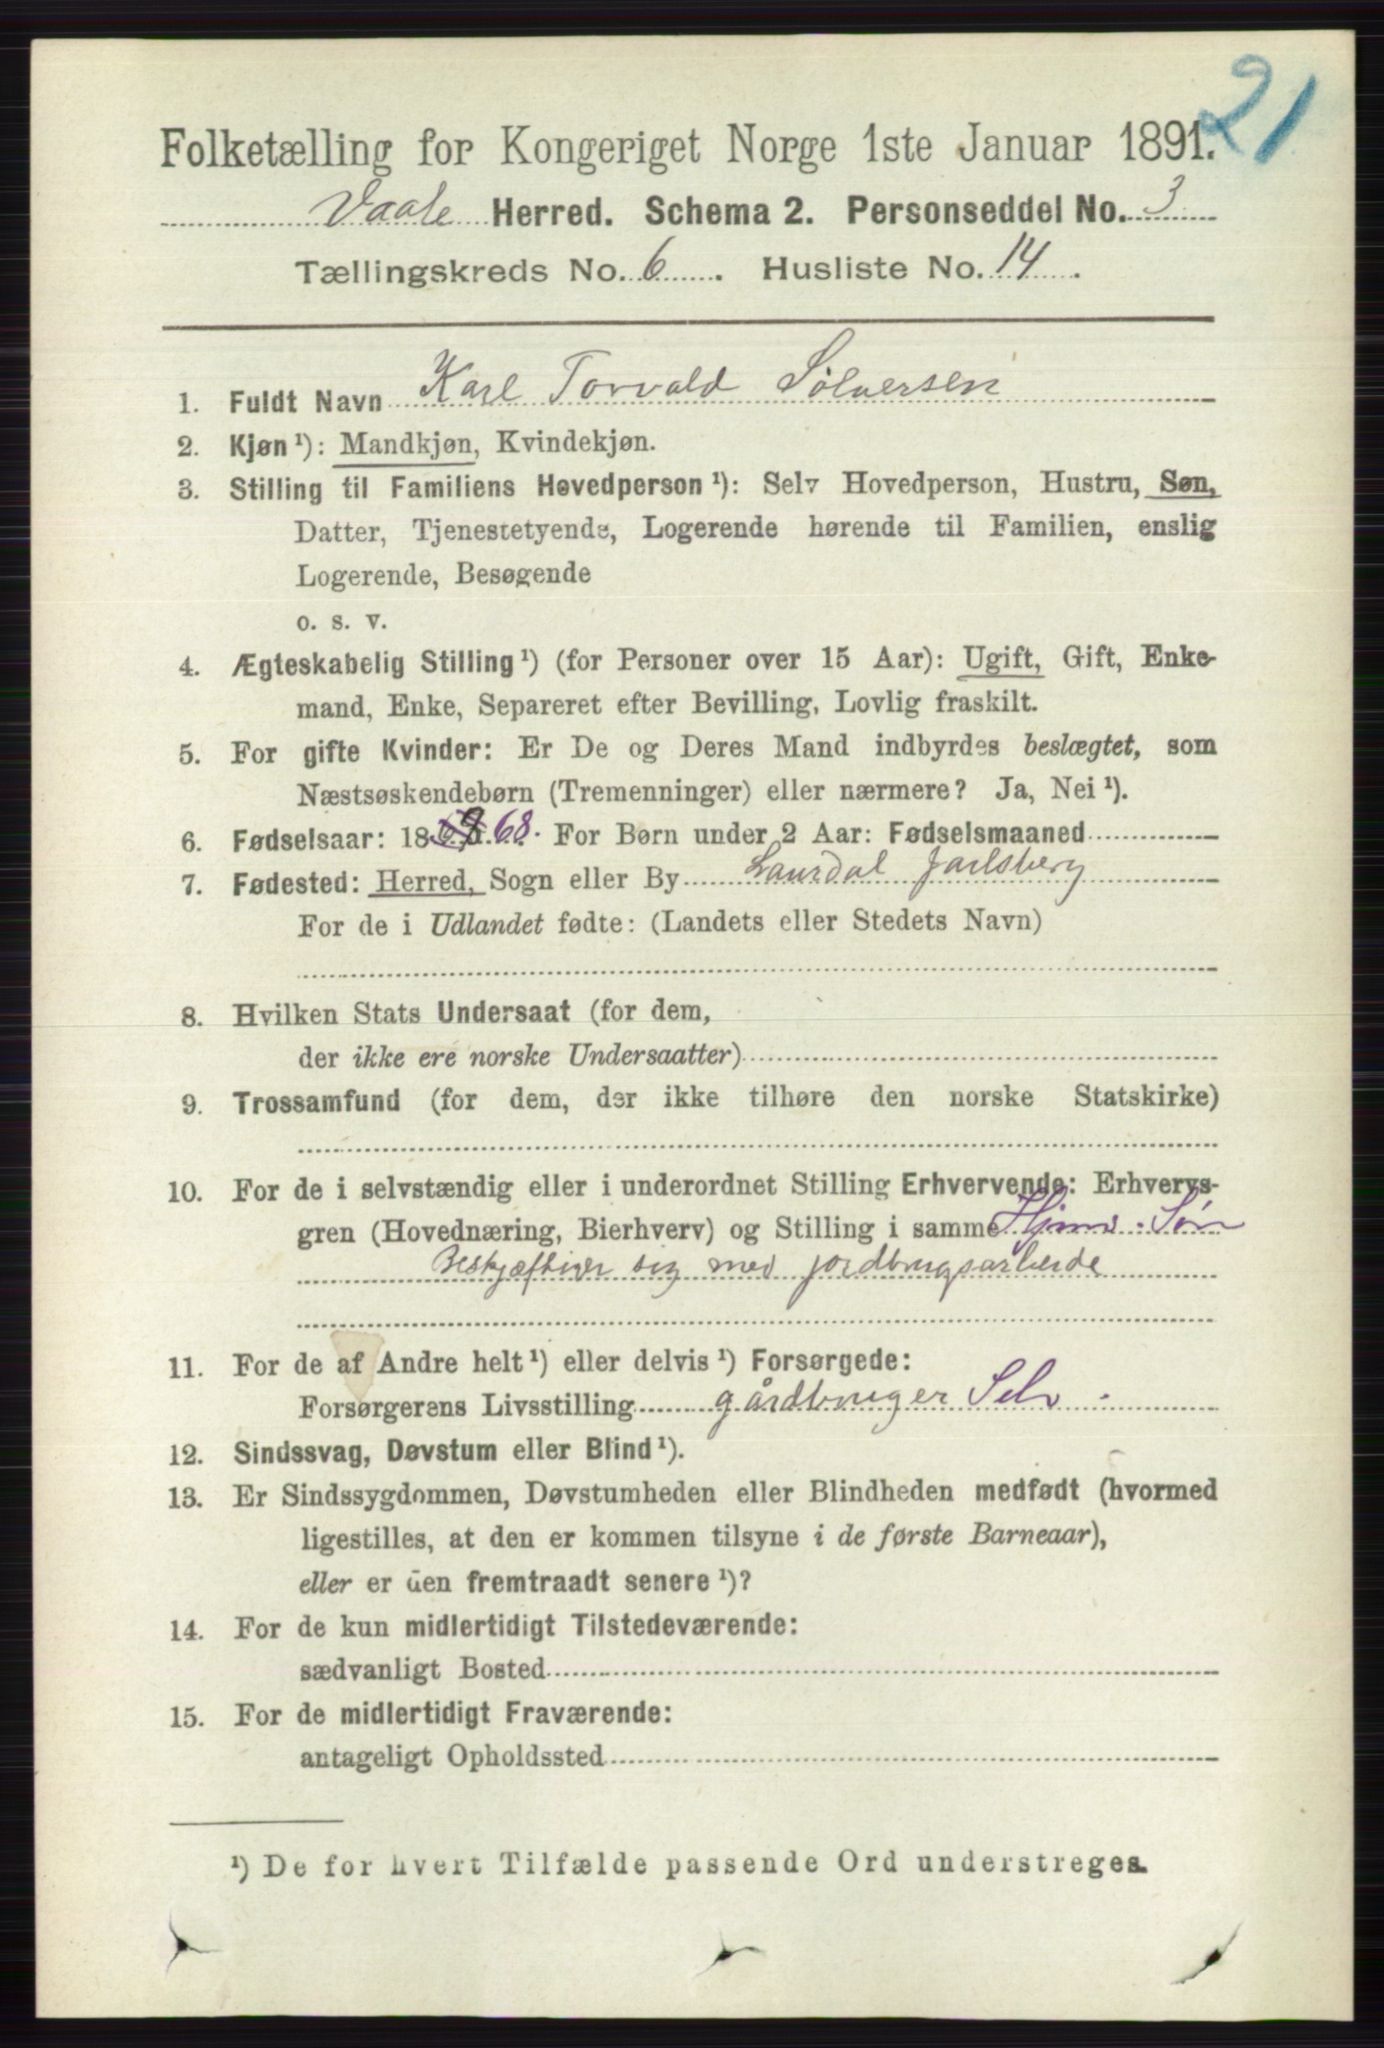 21
Folketælling for Kongeriget Norge 1ste Januar 1891.
Vaale Herred. Schema 2. Personseddel No. 3
Tællingskreds No. 6. Husliste No. 14.
1. Fuldt Navn Karl Torvald Sølversen
2. Kjøn ¹): Mandkjøn, Kvindekjøn.
3. Stilling til Familiens Hovedperson ¹): Selv Hovedperson, Hustru, Søn,
Datter, Tjenestetyende, Logerende hørende til Familien, enslig
Logerende, Besøgende
o. s. v.
4. Ægteskabelig Stilling ¹) (for Personer over 15 Aar): Ugift, Gift, Enke-
mand, Enke, Separeret efter Bevilling, Lovlig fraskilt.
5. For gifte Kvinder: Er De og Deres Mand indbyrdes beslægtet, som
Næstsøskendebørn (Tremenninger) eller nærmere? Ja, Nei ¹).
6. Fødselsaar: 18 68. For Børn under 2 Aar: Fødselsmaaned
7. Fødested: Herred, Sogn eller By Laurdal Jarlsberg
For de i Udlandet fødte: (Landets eller Stedets Navn)
8. Hvilken Stats Undersaat (for dem,
der ikke ere norske Undersaatter)
9. Trossamfund (for dem, der ikke tilhøre den norske Statskirke)
10. For de i selvstændig eller i underordnet Stilling Erhvervende: Erhvervs-
gren (Hovednæring, Bierhverv) og Stilling i samme Hjmv. Søn
Beskjæftiger sig med jordbrugsarbeide
11. For de af Andre helt ¹) eller delvis ¹) Forsørgede:
Forsørgerens Livsstilling gårdbruger Selv.
12. Sindssvag, Døvstum eller Blind ¹).
13. Er Sindssygdommen, Døvstumheden eller Blindheden medfødt (hvormed
ligestilles, at den er kommen tilsyne i de første Barneaar),
eller er den fremtraadt senere ¹)?
14. For de kun midlertidigt Tilstedeværende:
sædvanligt Bosted
15. For de midlertidigt Fraværende:
antageligt Opholdssted
¹) De for hvert Tilfælde passende Ord understreges.